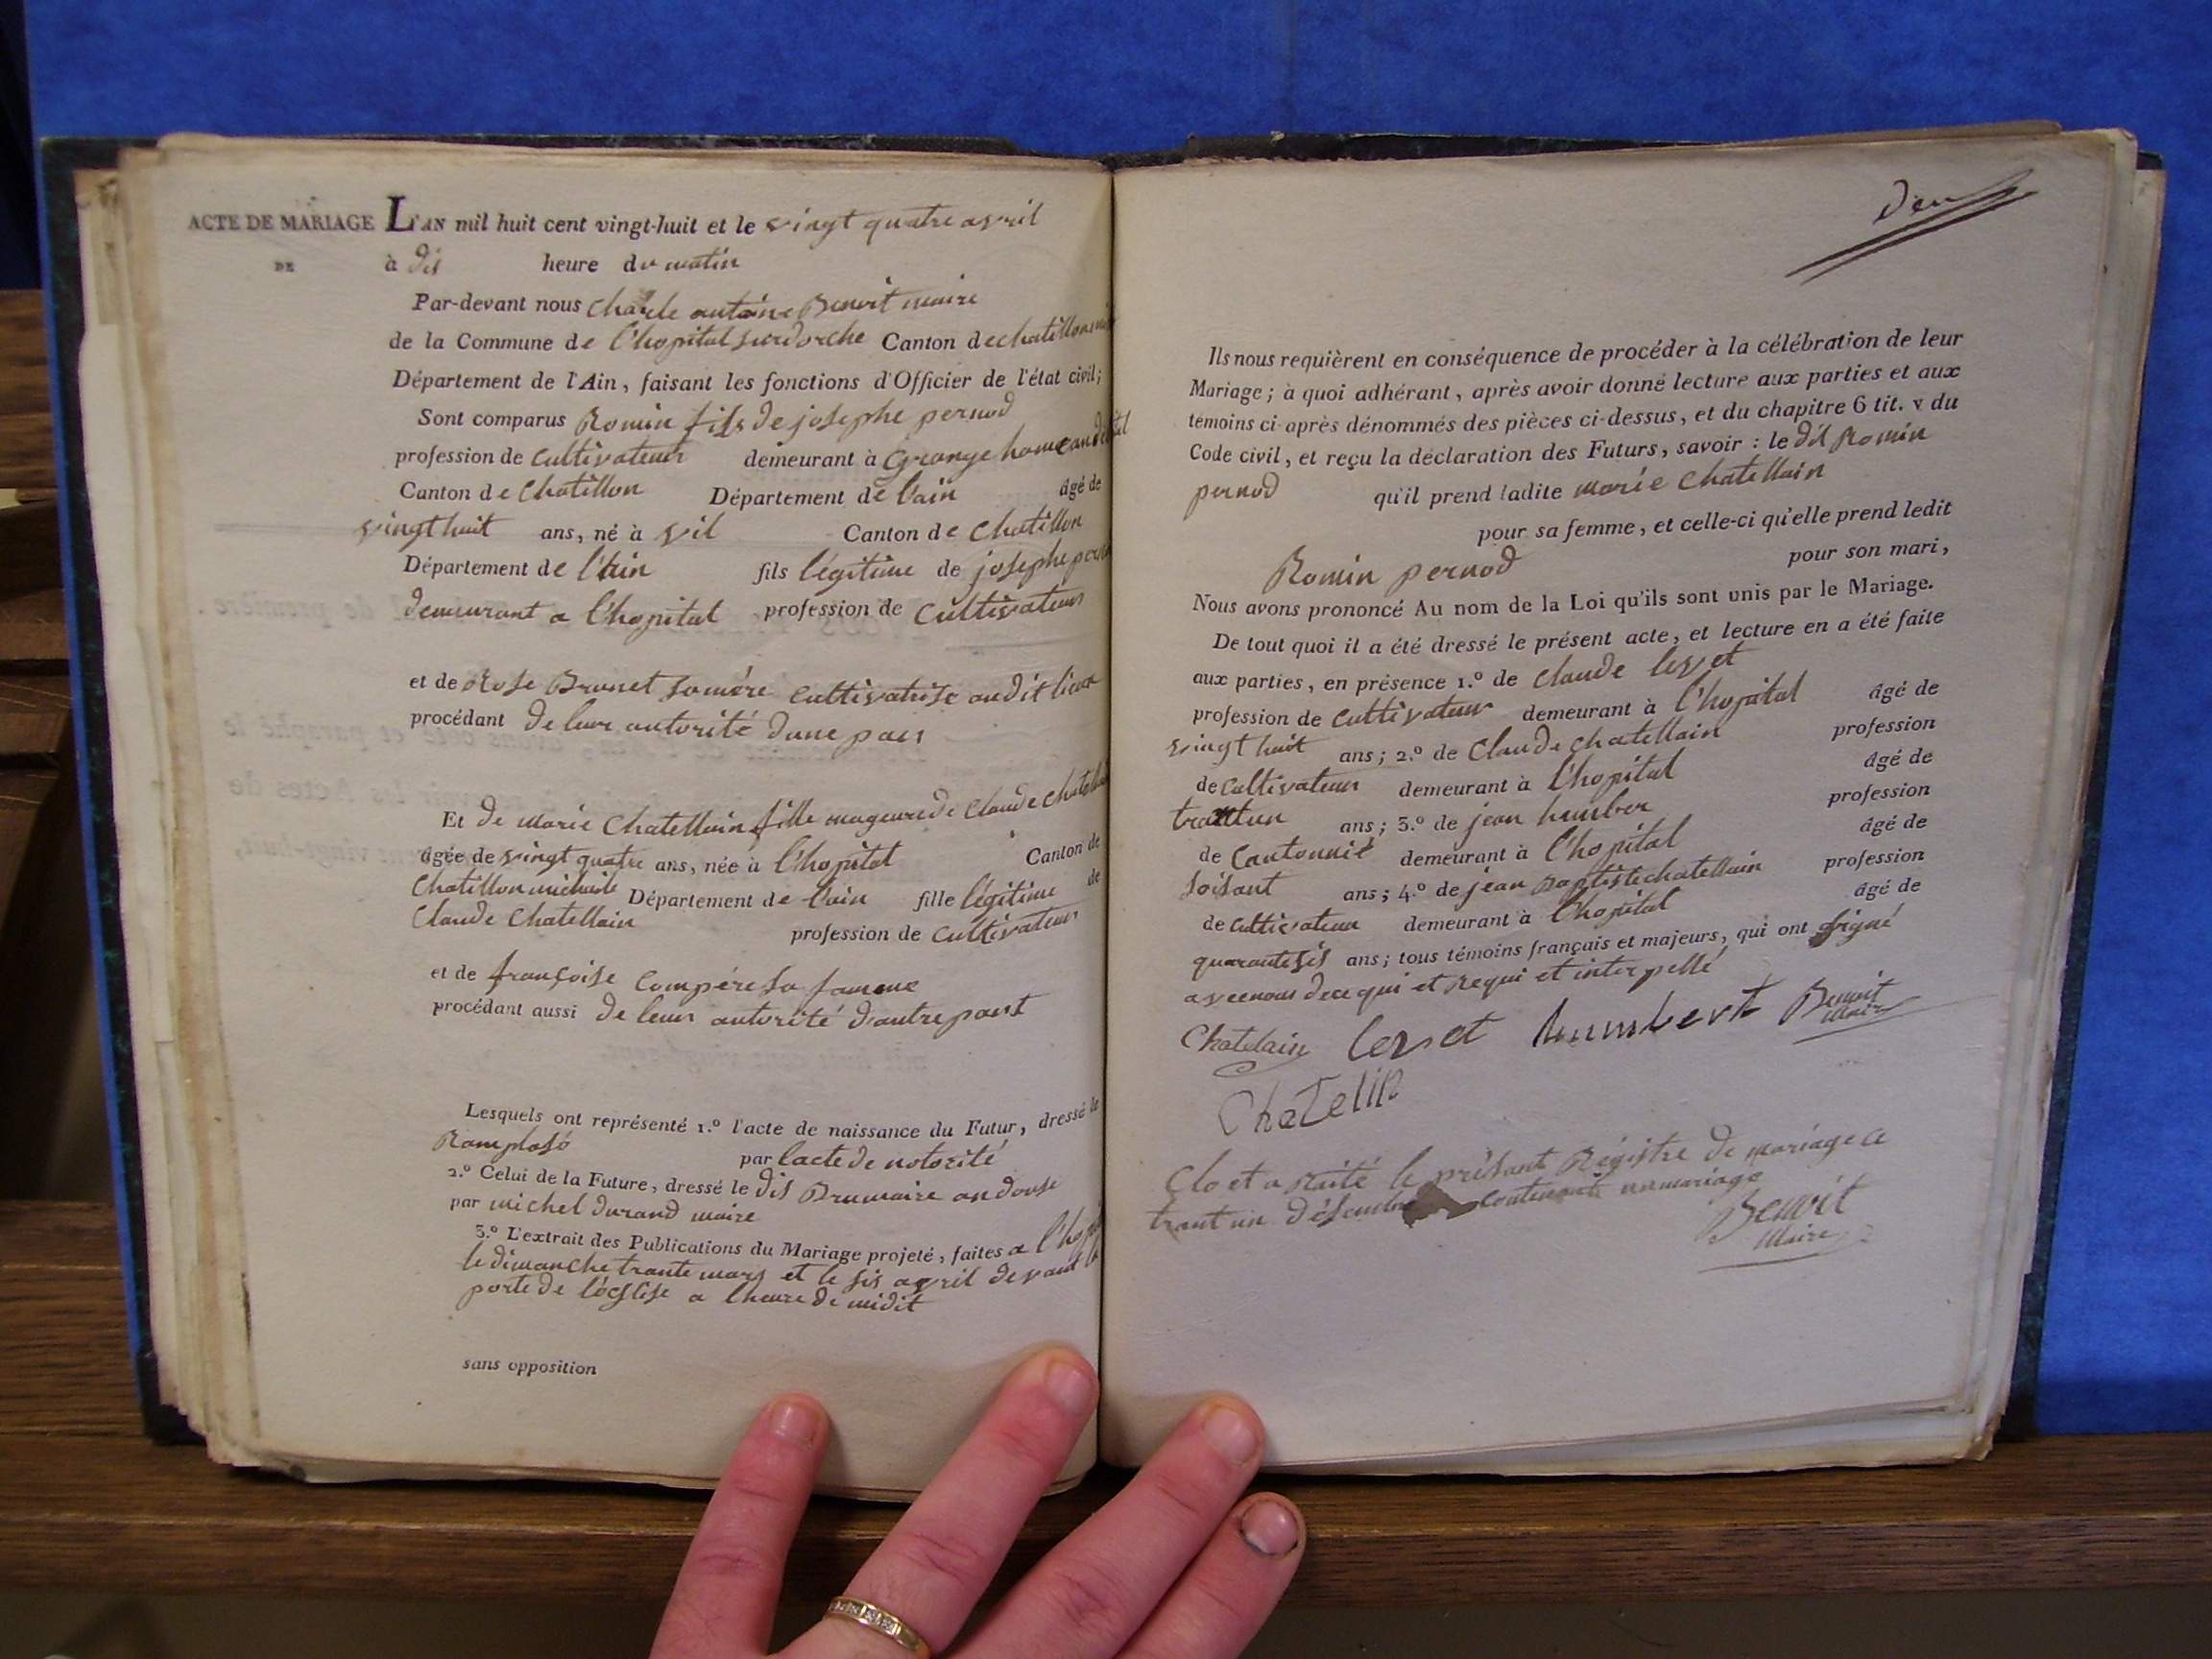 ACTE DE MARIAGE L'AN mil huit cent vingt-huit et le vingt quatre avril
DE à dis heure du matin
Par-devant nous charle antoine Benoit maire
de la Commune de l'hopital surdorche Canton de chatillon
Département de l'Ain, faisant les fonctions d'Officier de l'état civil;
Sont comparus Romin fils de josephe pernod
profession de cultivateur demeurant à Grange
Canton de Chatillon Département de l'ain âgé de
vingt huit ans, né à vil Canton de chatillon
Département de l'ain fils légitime de josephe
demeurant a l'hopital profession de cultivateur
et de Rose Brunet samére cultivatrise audit lieux
procédant de leur autorité dune part
Et de marie Chatellain fille mageure de Claude
âgée de vingt quatre ans, née à l'hopital Canton de
Chatillon michaile Département de l'ain fille légitime de
Claude Chatellain profession de cultivateur
et de françoise compére sa famme
procédant aussi de leur autorité dautre part
Lesquels ont représenté 1.º l'acte de naissance du Futur, dressé le
Ramplasé par lacte de notorité
2.º Celui de la Future, dressé le dis Brumaire an douse
par michel durand maire
3.º L'extrait des Publications du Mariage projeté, faites a
le dimanche trante mars et le sis avril devant la
porte de l'églese a lheure de midit
sans opposition
deux
Ils nous requièrent en conséquence de procéder à la célébration de leur
Mariage; à quoi adhérant, après avoir donné lecture aux parties et aux
témoins ci-après dénommés des pièces ci-dessus, et du chapitre 6 tit. v du
Code civil, et reçu la déclaration des Futurs, savoir : le dit Romin
pernod qu'il prend ladite marie Chatellain
pour sa femme, et celle-ci qu'elle prend ledit
Romin pernod pour son mari,
Nous avons prononcé Au nom de la Loi qu'ils sont unis par le Mariage.
De tout quoi il a été dressé le présent acte, et lecture en a été faite
aux parties, en présence 1.º de claude levet
profession de cultivateur demeurant à l'hopital âgé de
vingt huit ans; 2.º de Claude chatellain profession
de cultivateur demeurant à l'hopital âgé de
ans; 3.º de jean humber profession
de cantonnié demeurant à l'hopital âgé de
soisant ans; 4.º de jean Baptiste chatellain profession
de cultivateur demeurant à l'hopital âgé de
quarantesis ans; tous témoins français et majeurs, qui ont signé
avecnous dece qui et Requi et interpellé
Chatelain levet humbert Benoit
maire
Chatelin
Clo et a Raité le présant Régistre de mariage ce
trant un désembre contenant un mariage
Benoit
Maire